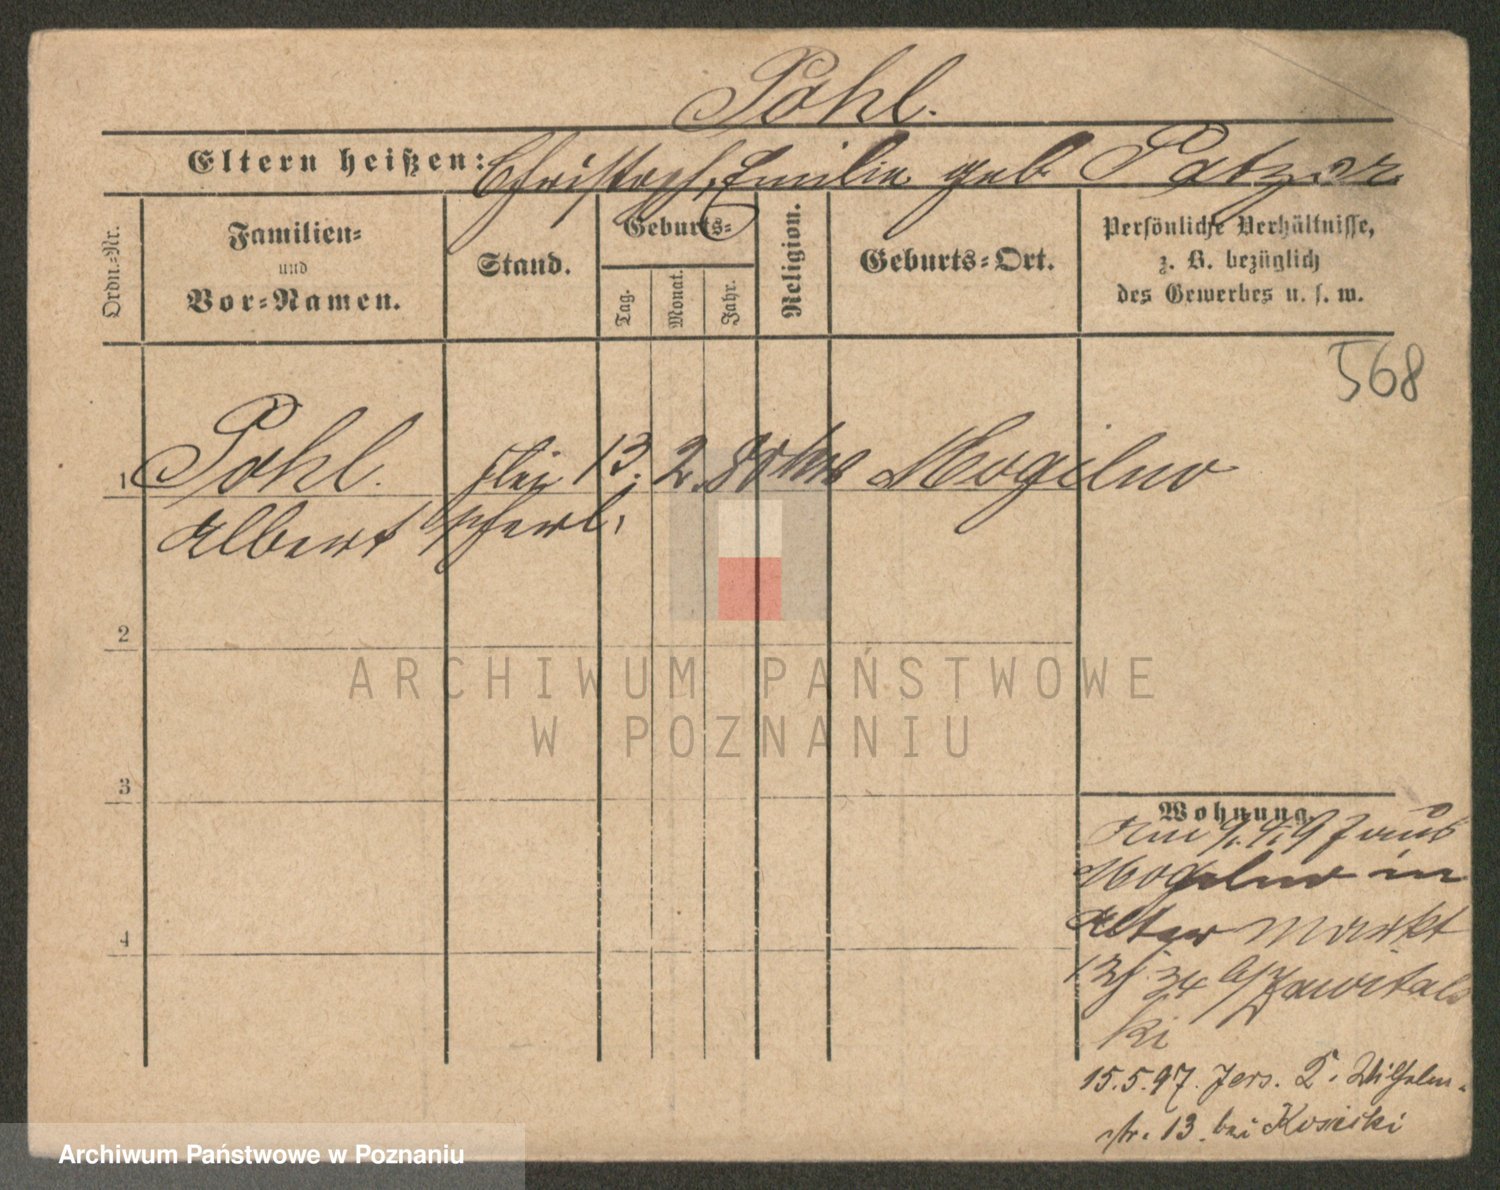 Pohl.
Eltern heißen: Christoph, Emilie geb Patzer
Ordn.-Nr.
Familien- und Vor-Namen.
Stand.
Geburts-
Tag.
Monat.
Jahr.
Religion.
Geburts-Ort.
Persönliche Verhältnisse,
z. B. bezüglich
des Gewerbes u. s. w.
568
1 Pohl. 13. 2. 80 Mogilno
Albert
2
3
4
Wohnung.
Mogilno in
Alter Markt
15.5.97. Jers. Wilhelm-
str. 13. bei
ARCHIWUM PAŃSTWOWE
W POZNANIU
Archiwum Państwowe w Poznaniu